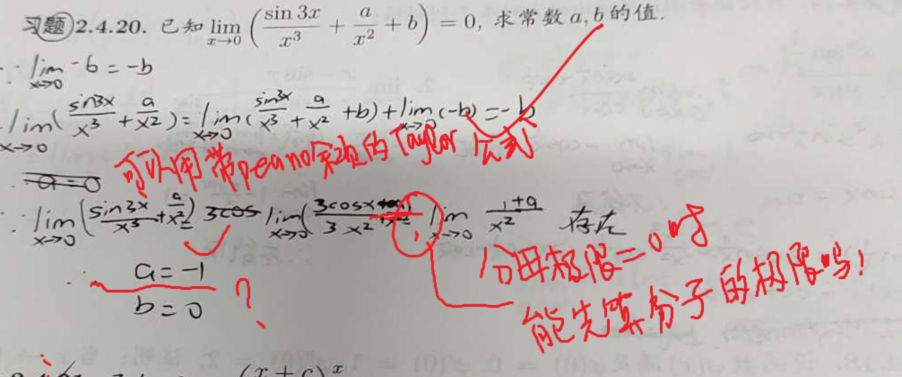 习题2.4.20. 已知 lim x→0 (sin 3x / x³ + a / x² + b) = 0, 求常数 a, b 的值.
∵ lim x→0 -b = -b
∴ lim x→0 (sin3x / x³ + a / x²) = lim x→0 (sin3x / x³ + a / x² + b) + lim x→0 (-b) = -b
可以用带peano余项的Taylor公式
a=0
∴ lim x→0 (sin3x / x³ + a / x²) 3cos lim x→0 (3cosx / 3x² lim x→0 1+a / x² 存在
∴ a=-1
b=0 ?
分母极限=0时
能先算分子的极限吗!
(x+c)ˣ